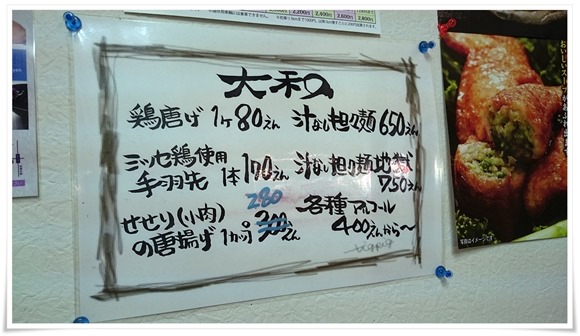 大和の
鶏唐げ 1ヶ80えん
ミツセ鶏使用
手羽先 1本170えん
280
せせり(小肉)
の唐揚げ 1カップ 300えん
汁なし担々麺 650えん
汁なし担々麺地獄
750えん
各種アルコール
400えんから〜
2,200円 2,400円 2,600円 2,800円
写真はイメージです